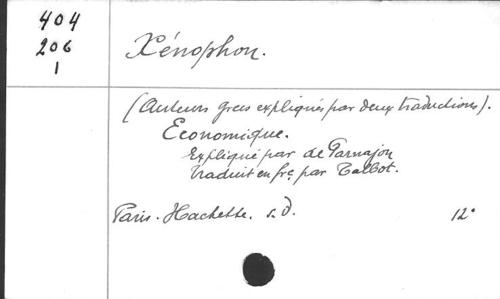 404
206
1
Xénophon.
(Auteurs grecs expliqués par deux traductions).
Economique.
Expliqué par de Parnajon
traduit en frc̣ par Talbot.
Paris. Hachette. s.d. 12°